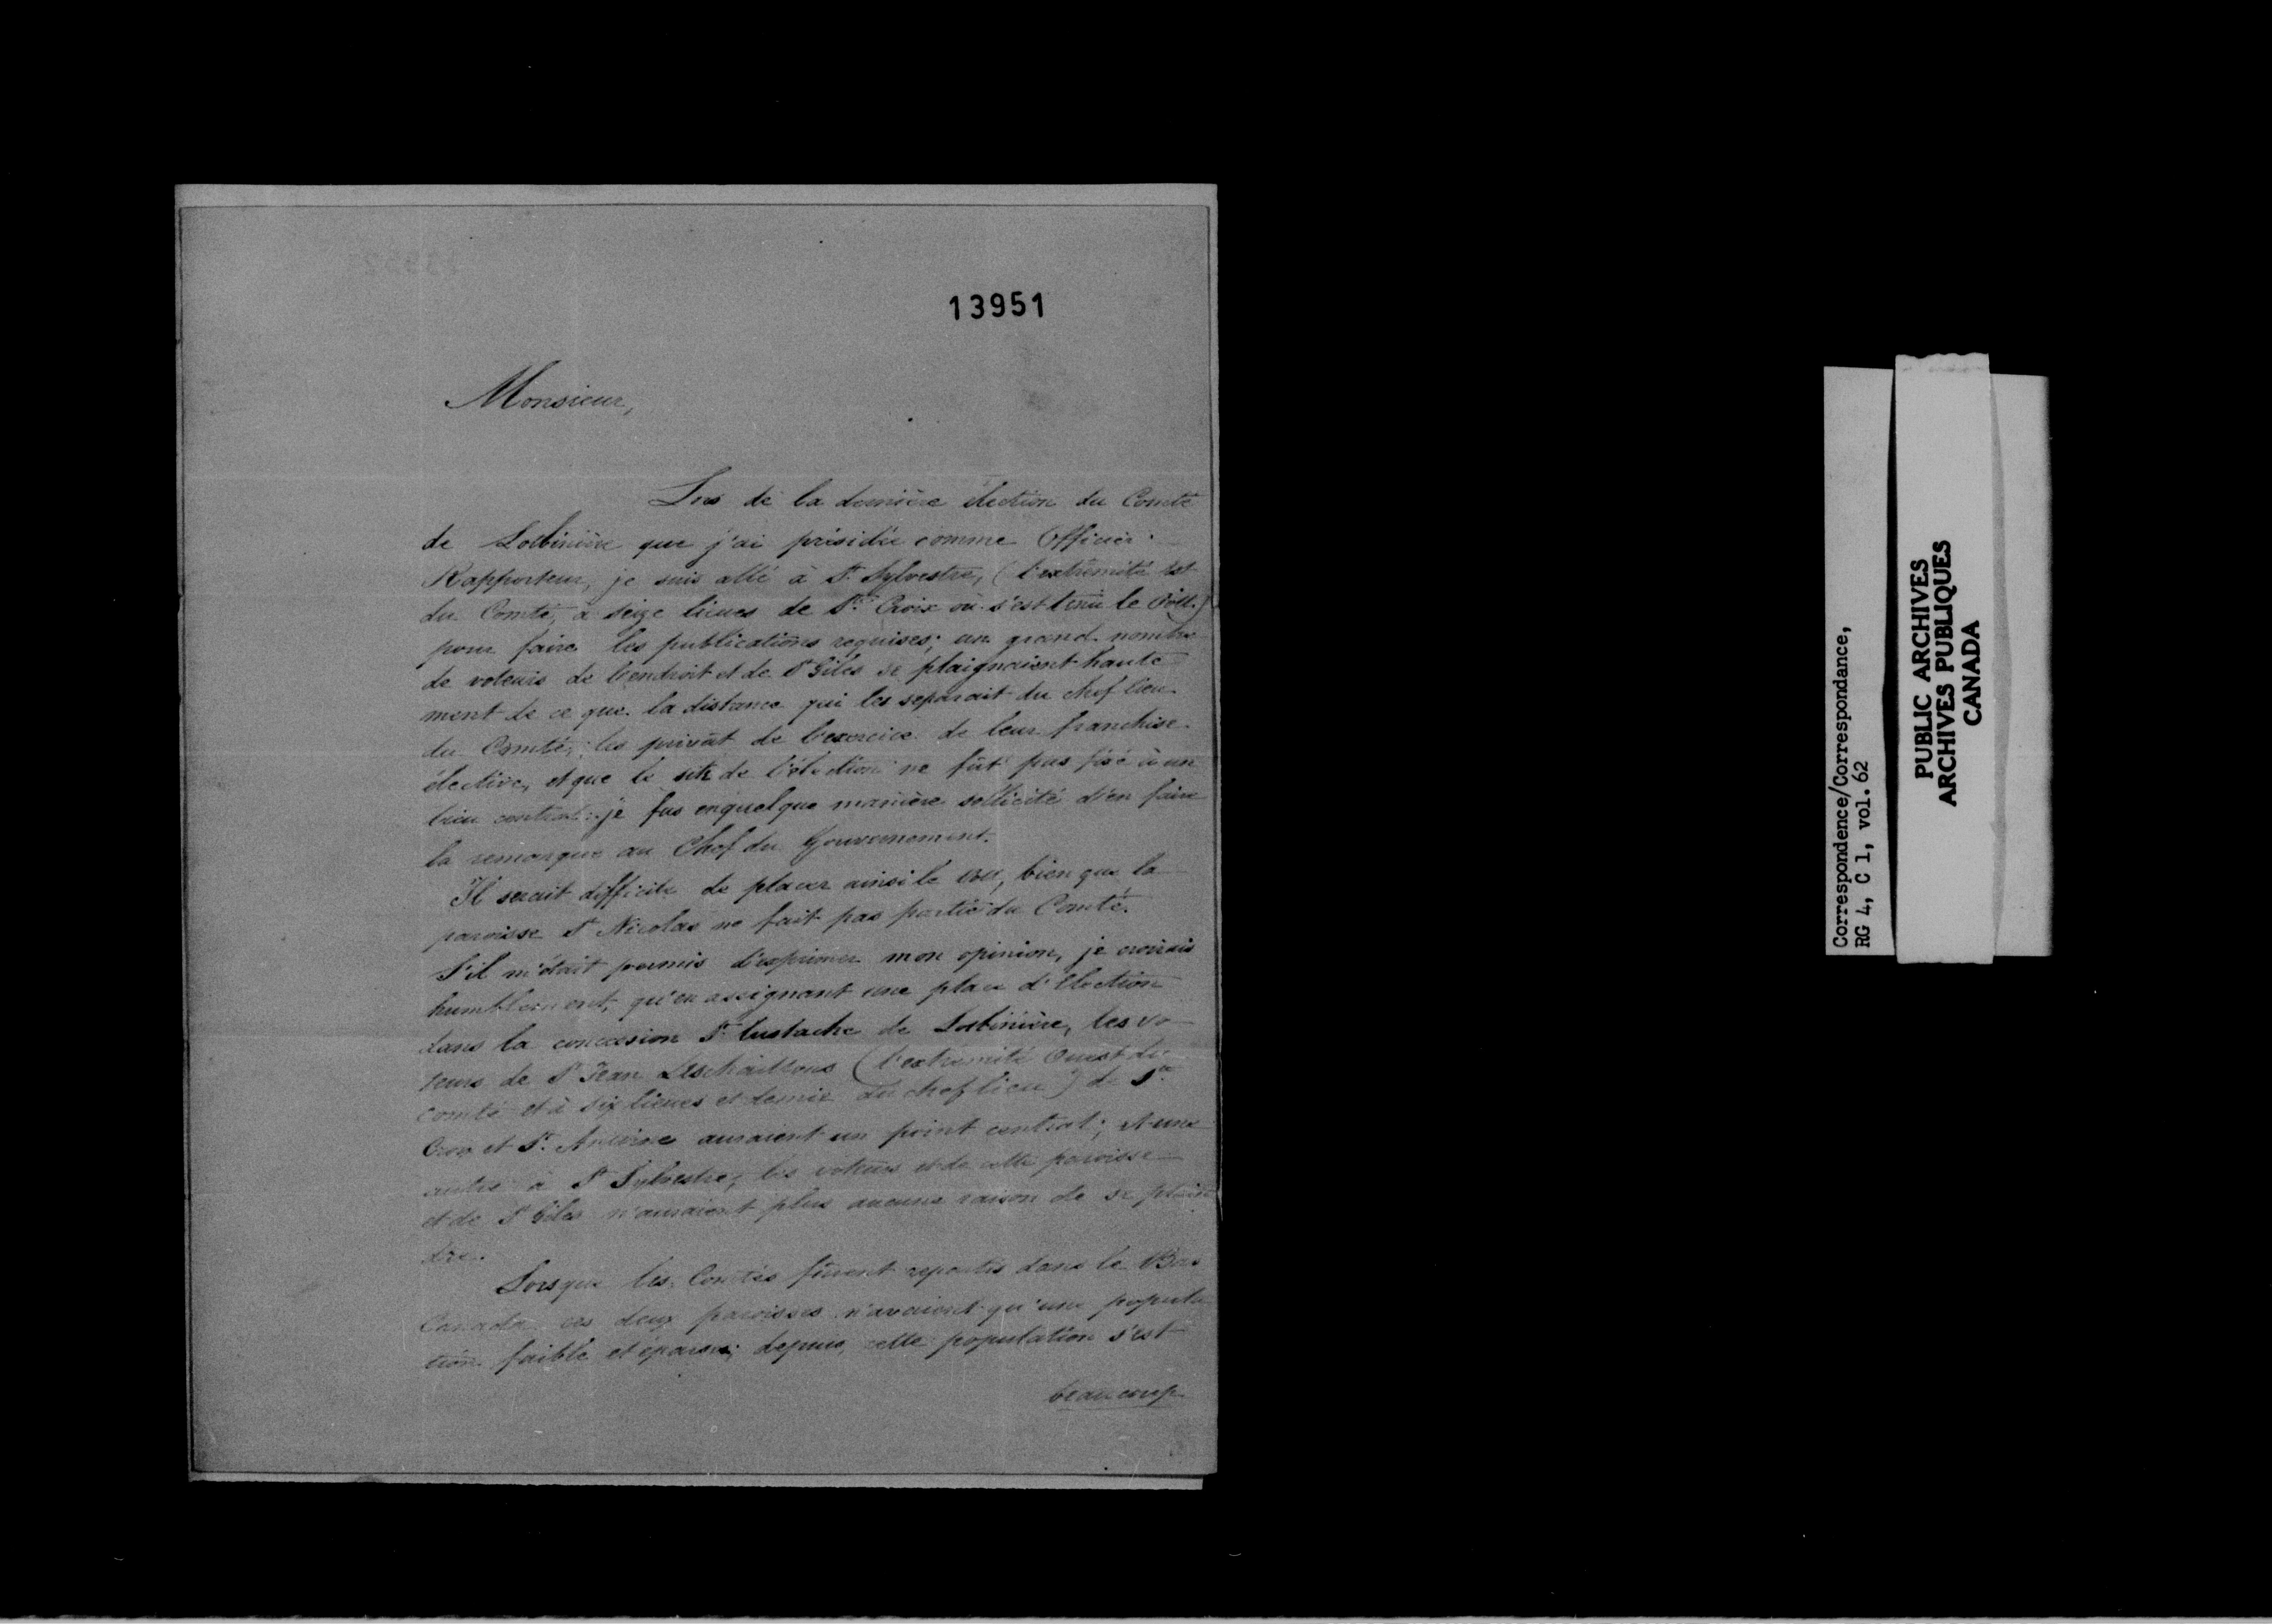 13951
Monsieur,
Lors de la dernière élection du Comté
de Lotbinière que j'ai présidée comme Officier
Rapporteur, je suis allé à St. Sylvestre, (l'extrémité Est
du Comté, à seize lieues de Ste. Croix où s'est tenu le Poll.)
pour faire les publications requises; un grand nombre
de voteurs de l'endroit et de St Giles se plaignaient haute
ment de ce que la distance qui les separait du chef lieu
du Comté, les privât de l'exercice de leur franchise
élective, et que le site de l'élection ne fût pas fixé à un
lieu central: je fus en quelque manière sollicité d'en faire
la remarque au Chef du Gouvernement.
Il serait difficile de placer ainsi le , bien que la
paroisse St Nicolas ne fait pas partie du Comté.
S'il m'était permis d'exprimer mon opinion, je croirais
humblement, qu'en assignant une place d'élection
dans la concession St. Eustache de Lotbinière, les vo
teurs de St Jean Deschaillons (l'extremité Ouest du
comté et à six lieues et demie du chef lieu) de Ste.
Croix et St. Antoine auraient un point central; et une
autre à St Sylvestre, les voteurs et de cette paroisse
et de St Giles n'auraient plus aucune raison de se plain
dre.
Lorsque les Comtés furent repartis dans le Bas
Canada ces deux paroisses n'avaient qu'une popula
tion faible et éparse; depuis, cette population s'est
beaucoup
Correspondence/Correspondance,
RG 4, C 1, vol. 62
PUBLIC ARCHIVES
ARCHIVES PUBLIQUES
CANADA